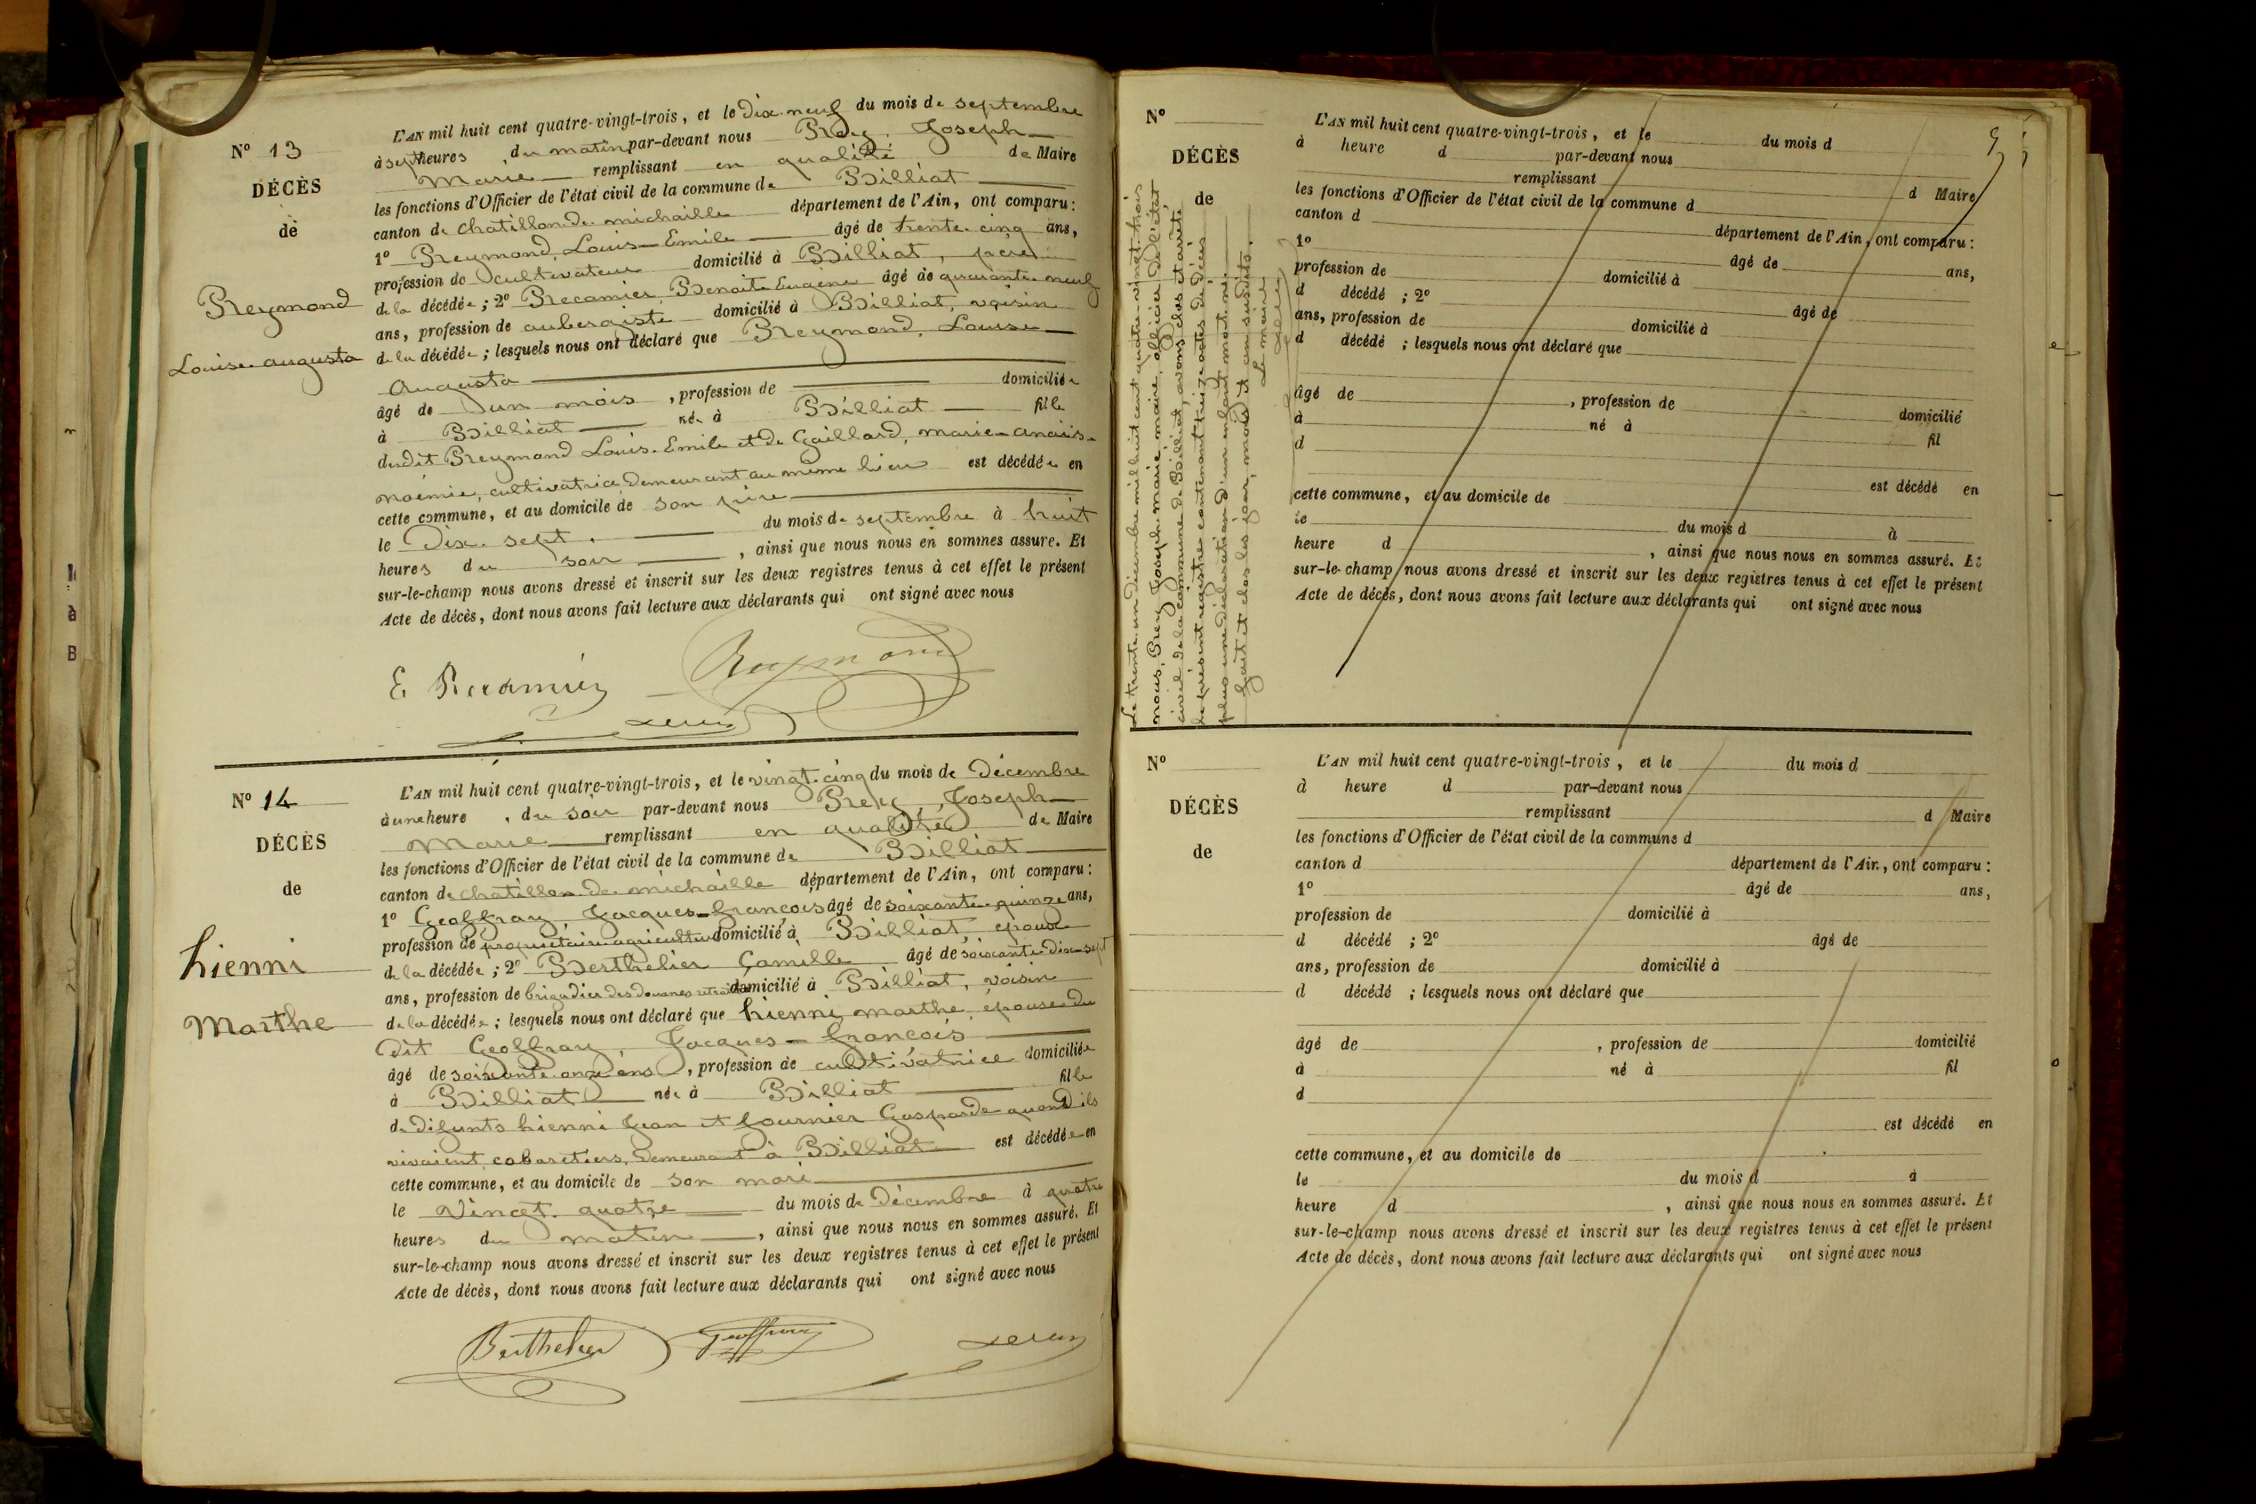 N° 13
DÉCÈS
de
Reymond
Louise augusta
L'AN mil huit cent quatre-vingt-trois, et le Dix neuf du mois de septembre
à sept heures du matin par-devant nous Prey Joseph
Marie remplissant en qualité de Maire
les fonctions d'Officier de l'état civil de la commune de Billiat
canton de Chatillon de michaille département de l'Ain, ont comparu :
1° Reymond, Louis Emile âgé de trente cinq ans,
profession de cultivateur domicilié à Billiat, père
de la décédée ; 2° Recamier, Benoite Eugène âgé de quarante neuf
ans, profession de aubergiste domicilié à Billiat, voisin
de la décédée ; lesquels nous ont déclaré que Reymond, Louise
Augusta
âgé de un mois, profession de domiciliée
à Billiat née à Billiat fille
dudit Reymond Louis Emile et de Gaillard, marie anaïs
noémie, cultivatrice demeurant au même lieu est décédée en
cette commune, et au domicile de son père
le Dix sept du mois de septembre à huit
heures du soir, ainsi que nous nous en sommes assuré. Et
sur-le-champ nous avons dressé et inscrit sur les deux registres tenus à cet effet le présent
Acte de décès, dont nous avons fait lecture aux déclarants qui ont signé avec nous
E Recamier Reymond
N° 14
DÉCÈS
de
hienni
Marthe
L'AN mil huit cent quatre-vingt-trois, et le vingt-cinq du mois de Décembre
à une heure du soir par-devant nous Prey, Joseph
Marie remplissant en qualité de Maire
les fonctions d'Officier de l'état civil de la commune de Billiat
canton de Chatillon de michaille département de l'Ain, ont comparu :
1° Geoffray, Jacques-françois âgé de soixante quinze ans,
profession de propriétaire agriculteur domicilié à Billiat, époux
de la décédée ; 2° Berthelier Camille âgé de soixante-dix-sept
ans, profession de brigadier des douanes retraité domicilié à Billiat, voisin
de la décédée ; lesquels nous ont déclaré que hienni marthe, épouse du
dit Geoffray, Jacques-françois
âgé de soixante onze ans, profession de cultivatrice domiciliée
à Billiat née à Billiat fille
de défunts hienni Jean et fournier Gasparde quand ils
vivaient cabaretiers, demeurant à Billiat est décédée en
cette commune, et au domicile de son mari
le Vingt quatre du mois de Décembre à quatre
heures du matin, ainsi que nous nous en sommes assuré. Et
sur-le-champ nous avons dressé et inscrit sur les deux registres tenus à cet effet le présent
Acte de décès, dont nous avons fait lecture aux déclarants qui ont signé avec nous
Berthelier Geoffray
N°
DÉCÈS
de
Le trente un décembre mil huit cent quatre-vingt-trois
nous, Prey Joseph marie, maire, officier de l'état
civil de la commune de Billiat, avons clos et arrêté
le présent registre contenant treize actes de décès
plus une déclaration d'un enfant mort-né.
Fait et clos les jour, mois et an susdits.
Le maire
L'AN mil huit cent quatre-vingt-trois, et le du mois d
à heure d par-devant nous
remplissant d Maire
les fonctions d'Officier de l'état civil de la commune d
canton d département de l'Ain, ont comparu :
1° âgé de ans,
profession de domicilié à
d décédé ; 2° âgé de
ans, profession de domicilié à
d décédé ; lesquels nous ont déclaré que
âgé de, profession de domicilié
à né à fil
d
est décédé en
cette commune, et au domicile de
le du mois d à
heure d, ainsi que nous nous en sommes assuré. Et
sur-le-champ nous avons dressé et inscrit sur les deux registres tenus à cet effet le présent
Acte de décès, dont nous avons fait lecture aux déclarants qui ont signé avec nous
N°
DÉCÈS
de
L'AN mil huit cent quatre-vingt-trois, et le du mois d
à heure d par-devant nous
remplissant d Maire
les fonctions d'Officier de l'état civil de la commune d
canton d département de l'Ain, ont comparu :
1° âgé de ans,
profession de domicilié à
d décédé ; 2° âgé de
ans, profession de domicilié à
d décédé ; lesquels nous ont déclaré que
âgé de, profession de domicilié
à né à fil
d
est décédé en
cette commune, et au domicile de
le du mois d à
heure d, ainsi que nous nous en sommes assuré. Et
sur-le-champ nous avons dressé et inscrit sur les deux registres tenus à cet effet le présent
Acte de décès, dont nous avons fait lecture aux déclarants qui ont signé avec nous